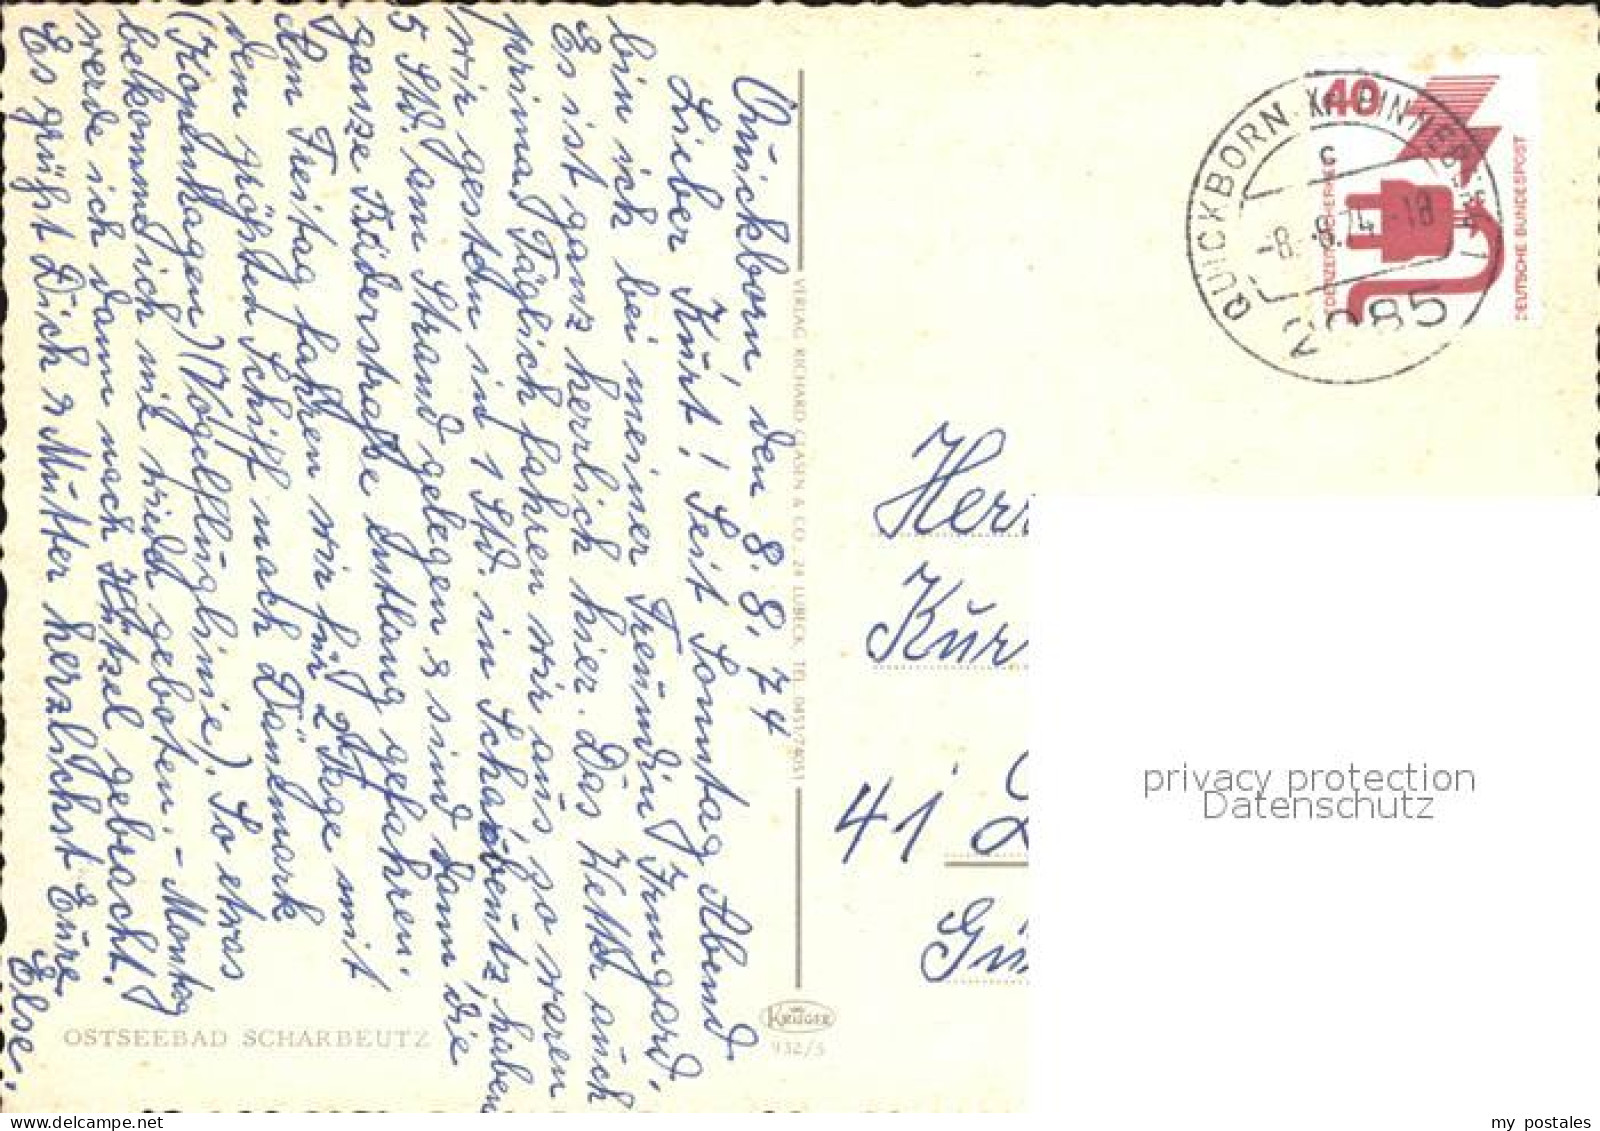 Quickborn, den 8.8.74
Lieber Kurt! Seit Sonntag Abend
bin ich bei meiner Freundin Irmgard.
Es ist ganz herrlich hier. Das Wetter auch
prima. Täglich fahren wir aus, so waren
wir gestern in 1 Std. in Scharbeutz, haben
5 Std. am Strand gelegen & sind dann die
ganze Bäderstraße entlang gefahren.
Am Freitag fahren wir für 2 Tage mit
dem größten Schiff nach Dänemark
(Kopenhagen) (Vogelfluglinie). So etwas
bekomme ich nie wieder geboten. - Montag
werde ich dann nach Hützel gebracht.
Es grüßt Dich & Mutter herzlichst Eure
Else.
OSTSEEBAD SCHARBEUTZ
VERLAG RICHARD GLASEN & CO. 24 LÜBECK, TEL. 0451/74051
KRÜGER
932/5
40
DEUTSCHE BUNDESPOST
QUICKBORN, KR PINNEBERG 1
c
-8.-8.74-18
2085
Herr
Kur
41
Gü
privacy protection
Datenschutz
my postales